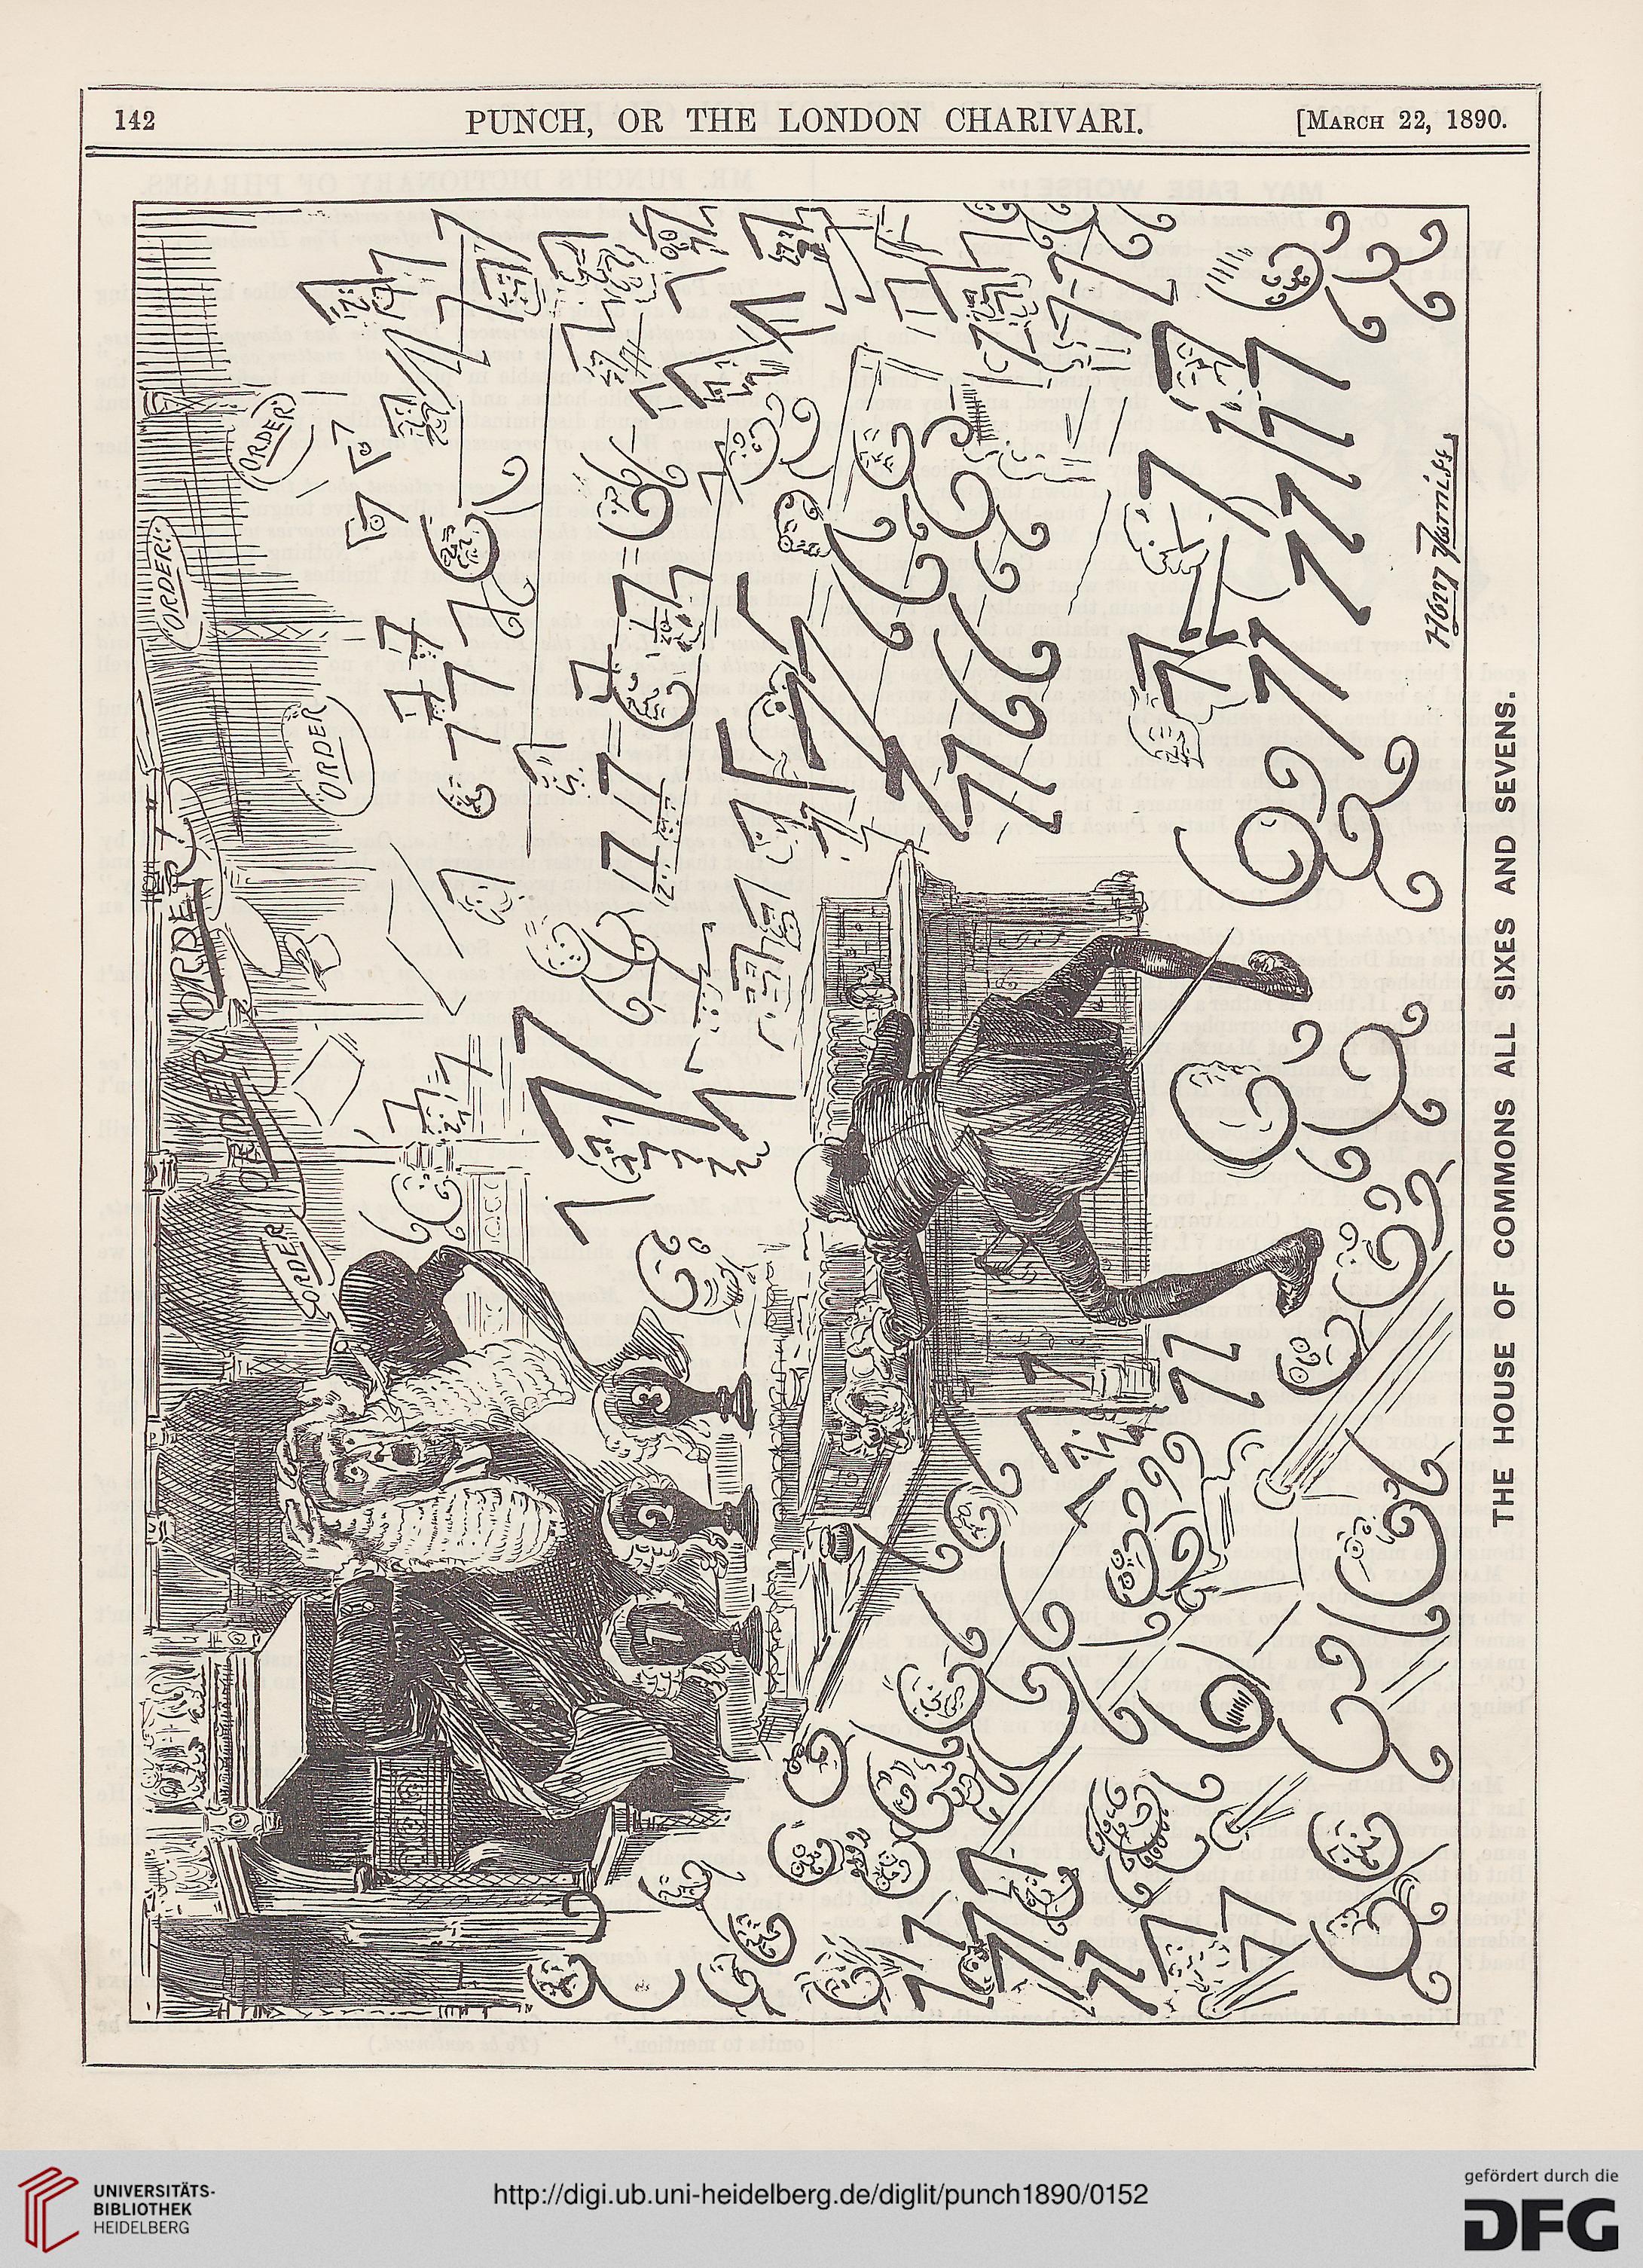 142
PUNCH, OR THE LONDON CHARIVARI.
[MARCH 22, 1890.
"ORDER!"
"ORDER"
"ORDER
"ORDER
ORDER
ORDER!
ORDER
1
2
3
Harry Furniss
THE HOUSE OF COMMONS ALL SIXES AND SEVENS.
UNIVERSITÄTS-
BIBLIOTHEK
HEIDELBERG
http://digi.ub.uni-heidelberg.de/diglit/punch1890/0152
gefördert durch die
DFG